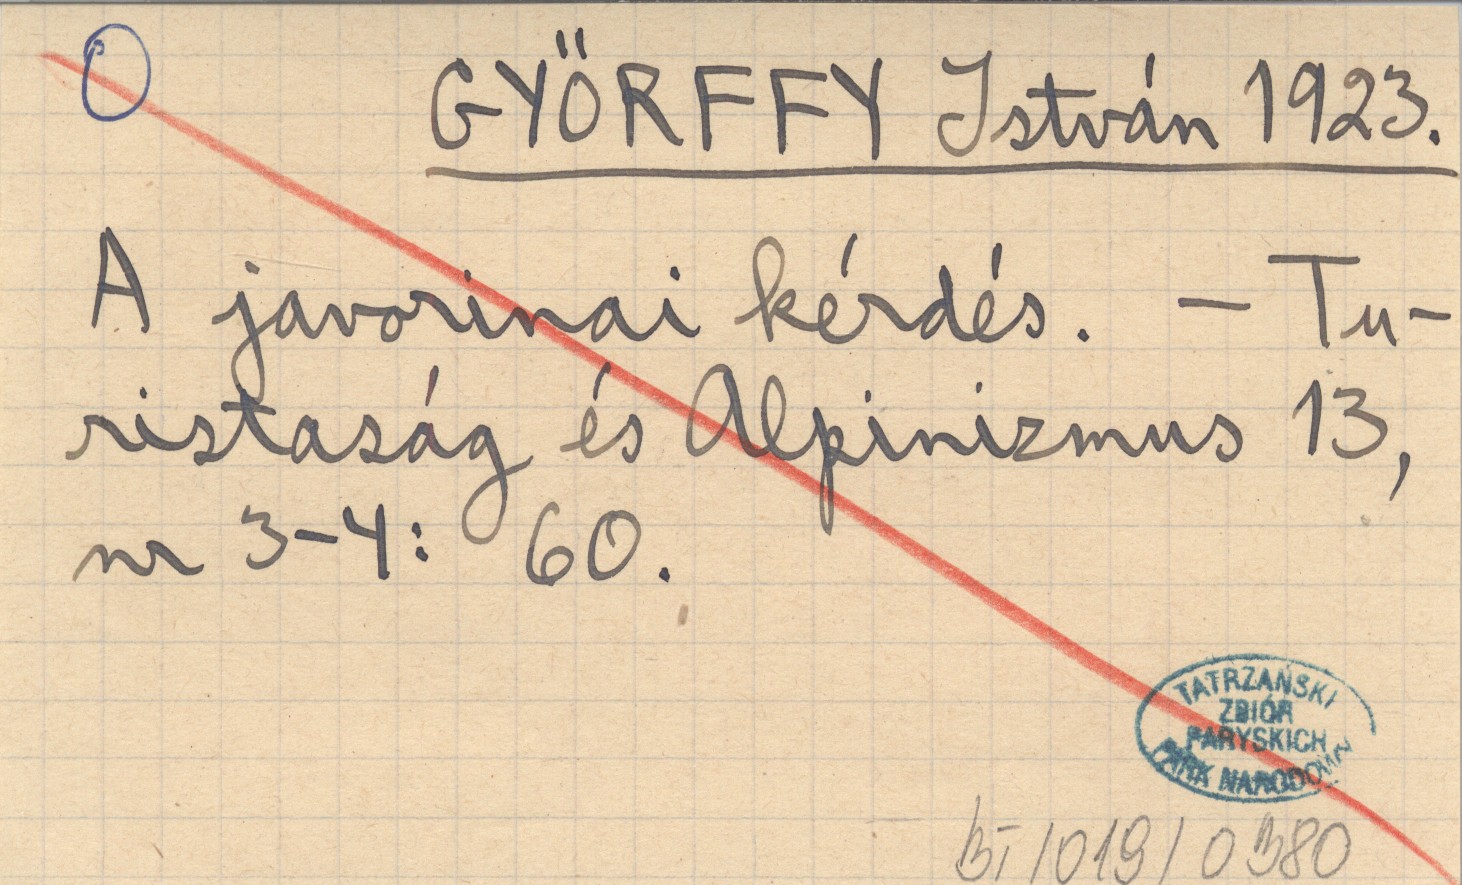 GYÖRFFY István 1923.
A javorinai kérdés. – Tu-
ristaság és Alpinizmus 13,
nr 3-4: 60.
TATRZAŃSKI
ZBIÓR
PARYSKICH
PARK NARODOWY
BT/019/0380